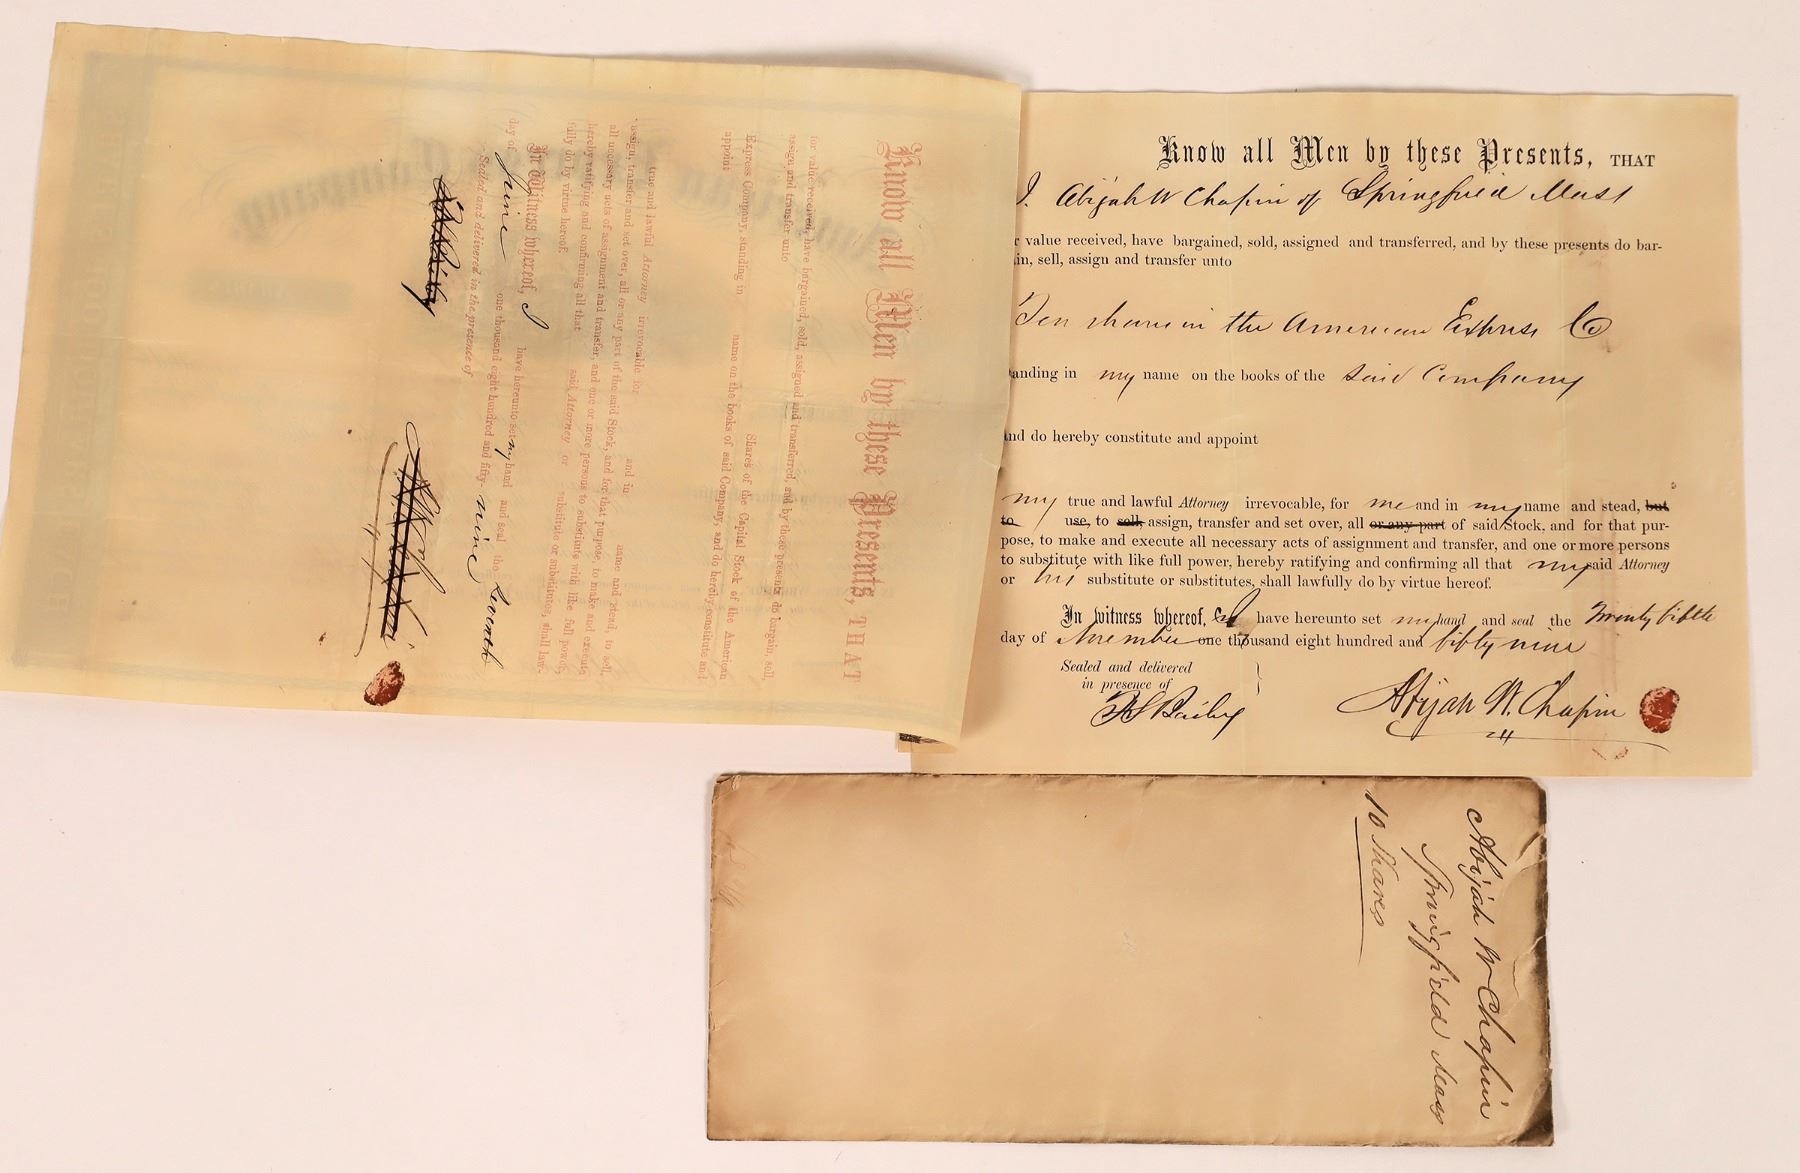 Know all Men by these Presents, THAT
for value received, have bargained, sold, assigned and transferred, and by these presents do bargain, sell,
assign and transfer unto
Shares of the Capital Stock of the American
Express Company, standing in name on the books of said Company, and do hereby constitute and
appoint
true and lawful Attorney irrevocable for and in name and stead, to sell,
assign, transfer and set over, all or any part of the said Stock, and for that purpose, to make and execute
all necessary acts of assignment and transfer, and one or more persons to substitute with like full power,
hereby ratifying and confirming all that said Attorney or substitute or substitutes, shall law-
fully do by virtue hereof.
In Witness whereof, I have hereunto set my hand and seal the Seventh
day of June one thousand eight hundred and fifty-nine
Sealed and delivered in the presence of
Know all Men by these Presents, THAT
I. Abijah W Chapin of Springfield Mass
r value received, have bargained, sold, assigned and transferred, and by these presents do bar-
in, sell, assign and transfer unto
Ten shares in the American Express Co
anding in my name on the books of the said Company
nd do hereby constitute and appoint
my true and lawful Attorney irrevocable, for me and in my name and stead, but
to use, to sell, assign, transfer and set over, all or any part of said Stock, and for that pur-
pose, to make and execute all necessary acts of assignment and transfer, and one or more persons
to substitute with like full power, hereby ratifying and confirming all that my said Attorney
or his substitute or substitutes, shall lawfully do by virtue hereof.
In witness whereof, I have hereunto set my hand and seal the Twenty fifth
day of November one thousand eight hundred and fifty nine
Sealed and delivered
in presence of
Bailey
Abijah W. Chapin
Abijah W Chapin
Springfield Mass
10 Shares